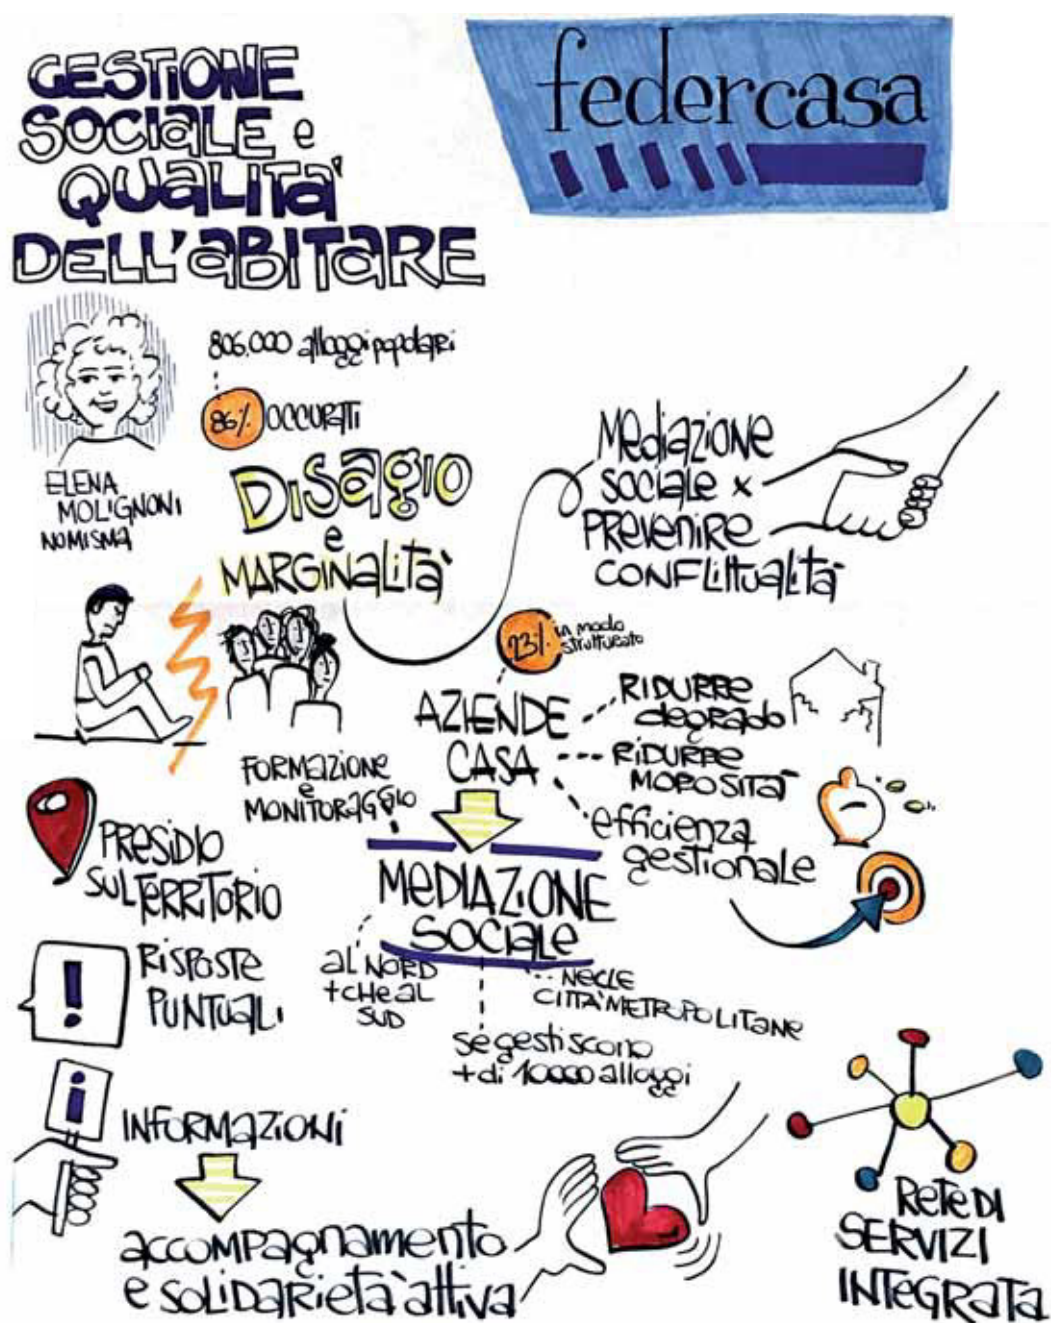 GESTIONE
SOCIALE e
QUALITA'
DELL'ABITARE
federcasa
806.000 alloggi popolari
86% OCCUPATI
DISAGIO
e
MARGINALITÀ
ELENA
MOLIGNONI
NOMISMA
MEDIAZIONE
SOCIALE x
PREVENIRE
CONFLITTUALITÀ
23% in modo
strutturato
AZIENDE
CASA
RIDURRE
degrado
RIDURRE
MOROSITÀ
efficienza
gestionale
FORMAZIONE
e
MONITORAGGIO
MEDIAZIONE
SOCIALE
AL NORD
+ CHE AL
SUD
NELLE
CITTÀ METROPOLITANE
se gestiscono
+ di 10000 alloggi
PRESIDIO
SUL TERRITORIO
!
RISPOSTE
PUNTUALI
i
INFORMAZIONI
accompagnamento
e solidarietà attiva
RETE DI
SERVIZI
INTEGRATA